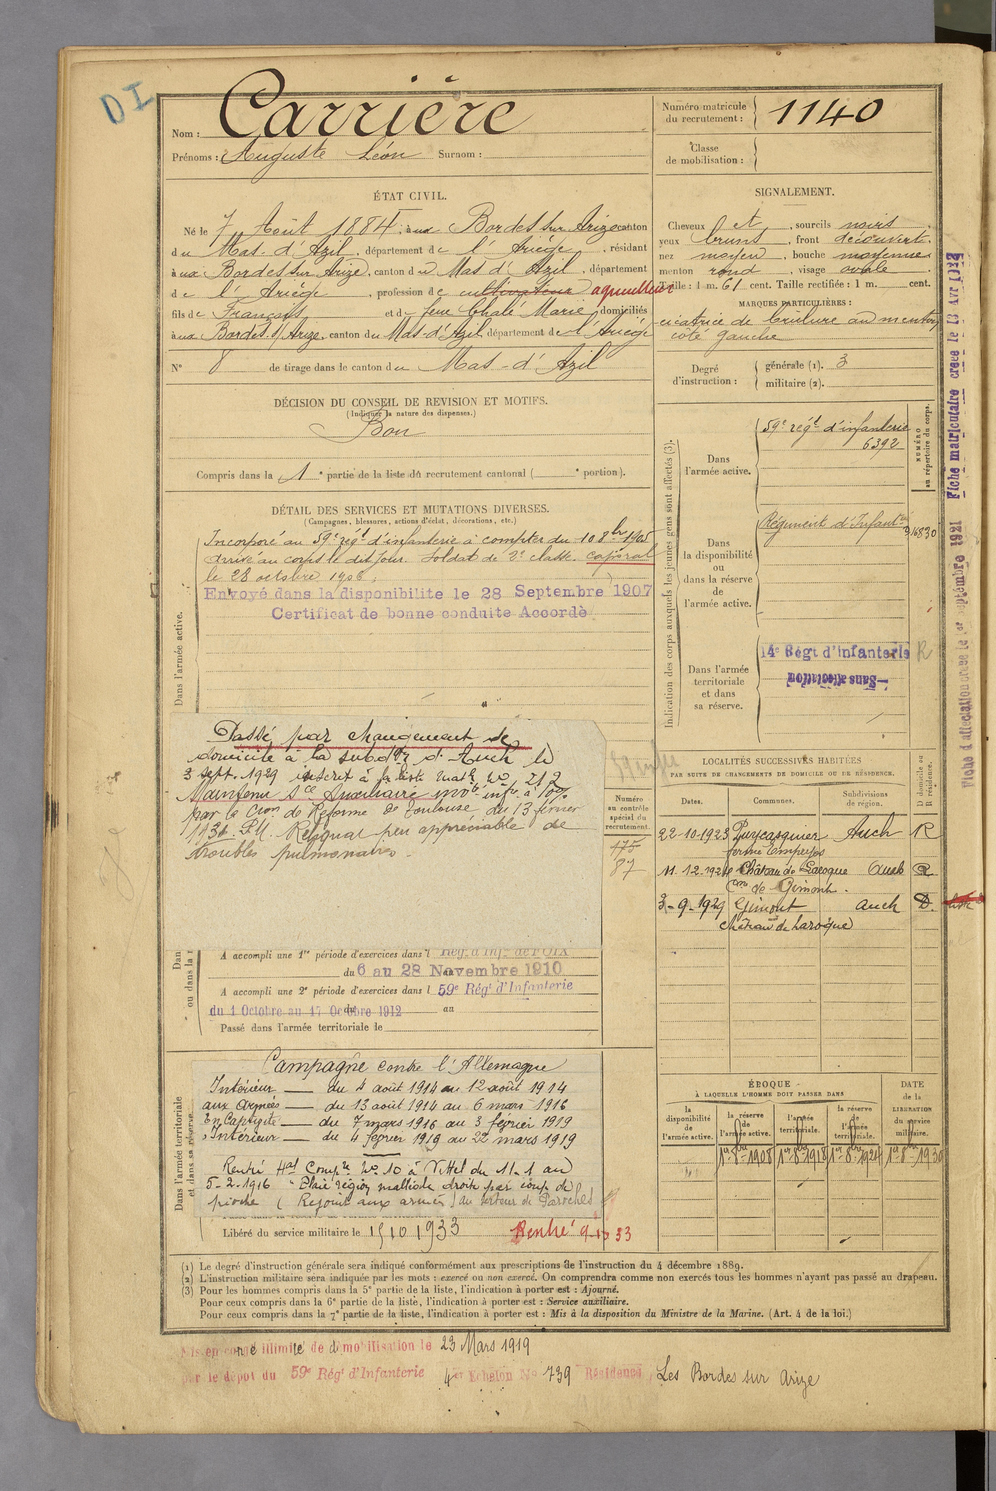 DI
Nom : Carrière
Prénoms : Auguste Léon Surnom :
Numéro matricule du recrutement : 1140
Classe de mobilisation :
ÉTAT CIVIL.
Né le 7 Août 1884, aux Bordes sur Arize canton
du Mas. d'Azil, département de l'Ariège, résidant
à aux Bordes sur Arize, canton du Mas d'Azil, département
de l'Ariège, profession de cultivateur
fils de François et de feue Chalé Marie, domiciliés
à aux Bordes s/ Arize, canton du Mas-d'Azil département de l'Ariège
N° 8 de tirage dans le canton du Mas-d'Azil
SIGNALEMENT.
Cheveux et, sourcils noirs
yeux bruns, front découvert.
nez moyen, bouche moyenne
menton rond, visage ovale
Taille : 1 m. 61 cent. Taille rectifiée : 1 m. cent.
MARQUES PARTICULIÈRES :
cicatrice de brûlure au menton
côté gauche
Degré d'instruction : générale (1). 3
militaire (2).
DÉCISION DU CONSEIL DE REVISION ET MOTIFS.
(Indiquer la nature des dispenses.)
Bon
Compris dans la 1e partie de la liste du recrutement cantonal ( e portion).
DÉTAIL DES SERVICES ET MUTATIONS DIVERSES.
(Campagnes, blessures, actions d'éclat, décorations, etc.)
Dans l'armée active.
Incorporé au 59e régt d'infanterie à compter du 10 8bre 1905
arrivé au corps le dit jour. Soldat de 2e classe. caporal
le 28 octobre 1906.
Envoyé dans la disponibilite le 28 Septembre 1907
Certificat de bonne conduite Accordé
Passé par changement de
domicile à la subdon d'Auch le
3 sept. 1929 inscrit à la liste matle No 212
Maintenu sce Auxiliaire infre à 10%
par la Cion de Réforme de Toulouse du 13 février
P.M. Reliquat peu appréciable de
troubles pulmonaires.
Dans
ou dans la r
A accompli une 1re période d'exercices dans l
du 6 au 28 Novembre 1910
A accompli une 2e période d'exercices dans l 59e Régt d'Infanterie
du 1 Octobre au 17 Octobre 1912 au
Passé dans l'armée territoriale le
Dans l'armée territoriale
et dans sa réserve.
Campagne contre l'Allemagne
Intérieur — du 4 août 1914 au 12 août 1914
aux Armées — du 13 août 1914 au 6 mars 1916
En Captivité — du 7 mars 1916 au 3 février 1919
Intérieur — du 4 février 1919 au 22 mars 1919
Rentré Hal Compre No 10 à Vittel du 11-1 au
5-2-1916 "Plaie région malléole droite par coup de
pioche (Rejoint aux armées) au secteur de Paroches
Libéré du service militaire le 15 10 1933
Rentré 9-10 33
Indication des corps auxquels les jeunes gens sont affectés (3).
Dans l'armée active.
59e régt d'infanterie
6392
NUMÉRO
au répertoire du corps.
Dans la disponibilité ou dans la réserve de l'armée active.
Régiment d'Infantrie
Dans l'armée territoriale et dans sa réserve.
14e Régt d'infanterie R
Sans affectation
Numéro au contrôle spécial du recrutement.
175
87
LOCALITÉS SUCCESSIVES HABITÉES
PAR SUITE DE CHANGEMENTS DE DOMICILE OU DE RÉSIDENCE.
Dates. Communes. Subdivisions de région. D domicile ou R résidence.
22-10-1923 Puycasquier Auch R
11.12.1924 Château de Laroque Auch R
Cne de Gimont.
3-9-1929 Gimont Auch D.
château de Laroque
ÉPOQUE
À LAQUELLE L'HOMME DOIT PASSER DANS
la disponibilité de l'armée active.
la réserve de l'armée active.
l'armée territoriale.
la réserve de l'armée territoriale.
DATE de la LIBÉRATION du service militaire.
1er 8bre 1908 1er 8bre 1918 1er 8bre 1924 1er 8bre 1930
(1) Le degré d'instruction générale sera indiqué conformément aux prescriptions de l'instruction du 4 décembre 1889.
(2) L'instruction militaire sera indiquée par les mots : exercé ou non exercé. On comprendra comme non exercés tous les hommes n'ayant pas passé au drapeau.
(3) Pour les hommes compris dans la 5e partie de la liste, l'indication à porter est : Ajourné.
Pour ceux compris dans la 6e partie de la liste, l'indication à porter est : Service auxiliaire.
Pour ceux compris dans la 7e partie de la liste, l'indication à porter est : Mis à la disposition du Ministre de la Marine. (Art. 4 de la loi.)
Mis en congé illimité de démobilisation le 23 Mars 1919
par le dépôt du 59e Régt d'Infanterie 4er Echelon No 739 Résidence, Les Bordes sur Arize
Fiche d'affectation créée le 1er Septembre 1921 Fiche matriculaire créée le